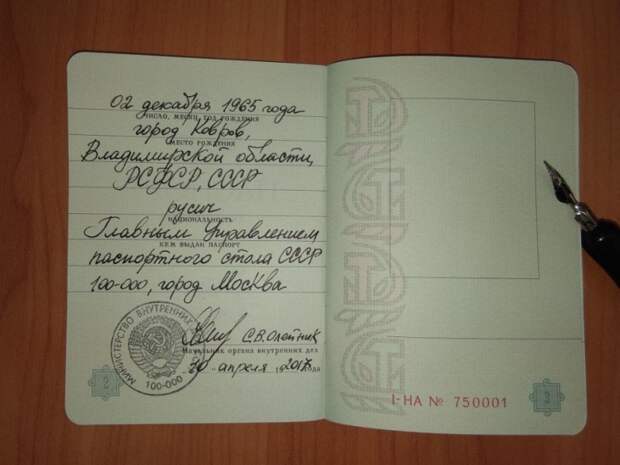 02 декабря 1965 года
ЧИСЛО, МЕСЯЦ, ГОД РОЖДЕНИЯ
город Ковров,
МЕСТО РОЖДЕНИЯ
Владимирской области,
РСФСР, СССР
русич
НАЦИОНАЛЬНОСТЬ
Главным Управлением
КЕМ ВЫДАН ПАСПОРТ
паспортного стола СССР
100-000, город Москва
С.В.Олейник
Начальник органа внутренних дел
20 апреля 2017 года
МИНИСТЕРСТВО ВНУТРЕННИХ
100-000
2
I-НА № 750001
3